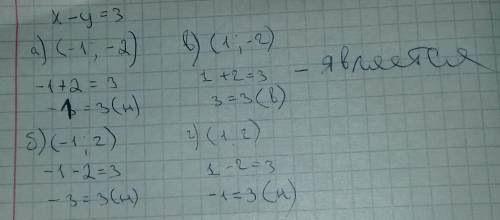 x-y=3
а) (-1, -2)
-1+2=3
-1=3(н)
б) (-1; 2)
-1-2=3
-3=3(н)
в) (1; -2)
1+2=3
3=3(в)
- является
г) (1, 2)
1-2=3
-1=3(н)